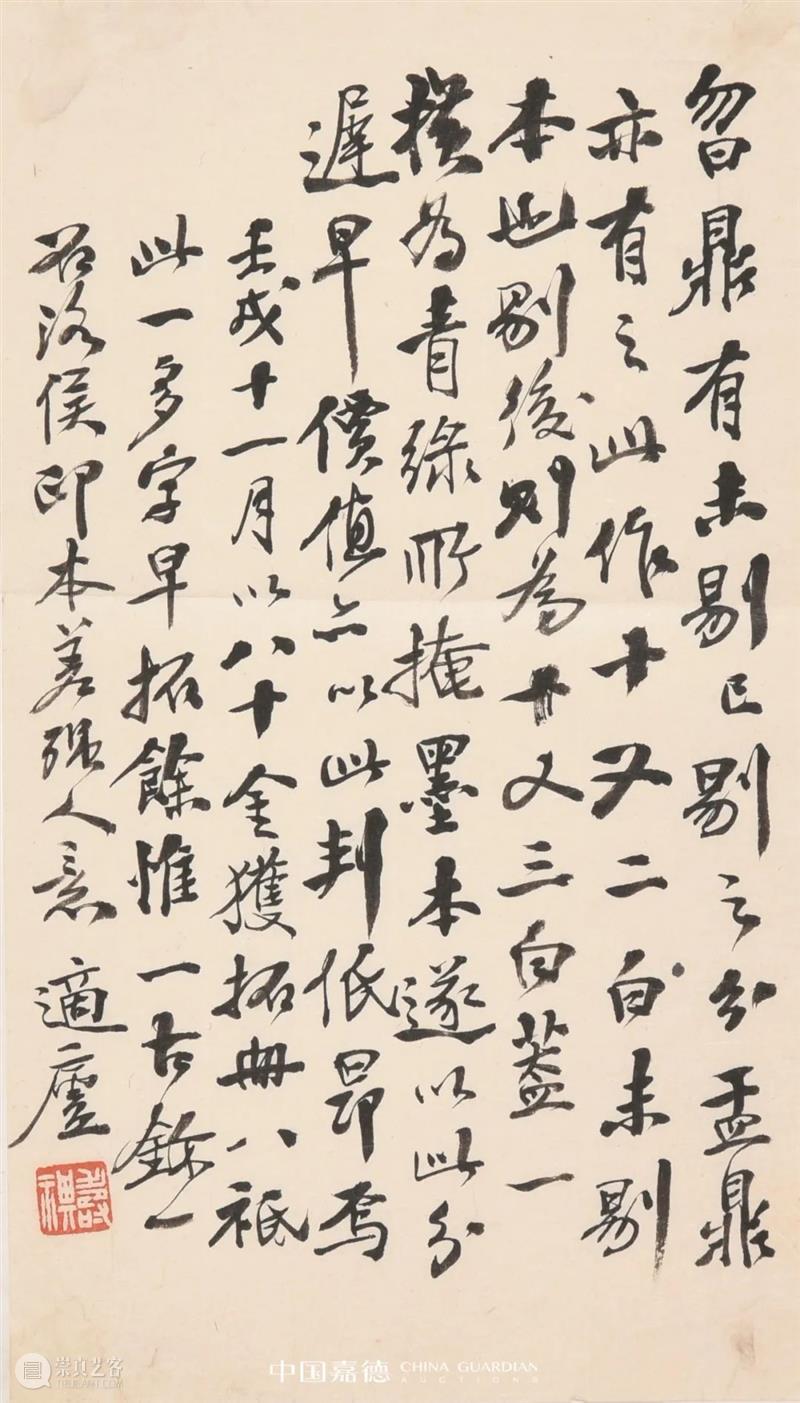 曶鼎有未剔已剔之分盂鼎
亦有之此作十又二白未剔
本也剔后则为廿又三白盖一
横为青绿所掩墨本遂以此分
遲早價值亦以此判低昂焉
壬戌十一月以八十金獲拓册八衹
此一多字早拓餘惟一古鉨一
洛侯印本差强人意 適廬
壽祺
中国嘉德 CHINA GUARDIAN
AUCTIONS
崇真艺客